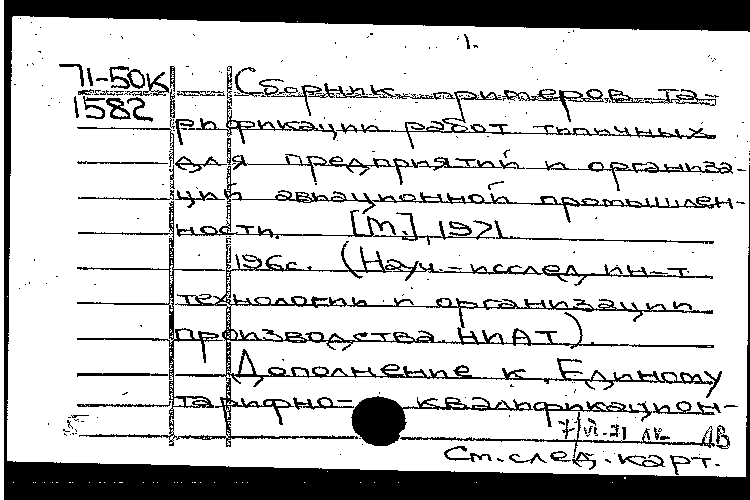 1.
71-50к Сборник примеров та-
1582
рификации работ типичных
для предприятий и организа-
ций авиационной промышлен-
ности. [М.], 1971.
196с. (Науч.-исслед. ин-т
технологии и организации
производства НИАТ).
Дополнение к Единому
тарифно-квалификацион-
7/VI-71 ДВ
См. след. карт.